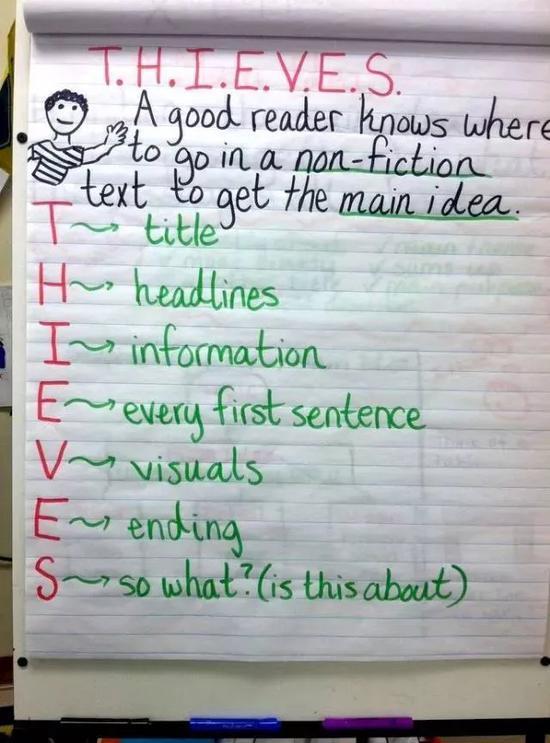 T.H.I.E.V.E.S.
A good reader knows where
to go in a non-fiction
text to get the main idea.
T → title
H → headlines
I → information
E → every first sentence
V → visuals
E → ending
S → so what? (is this about)